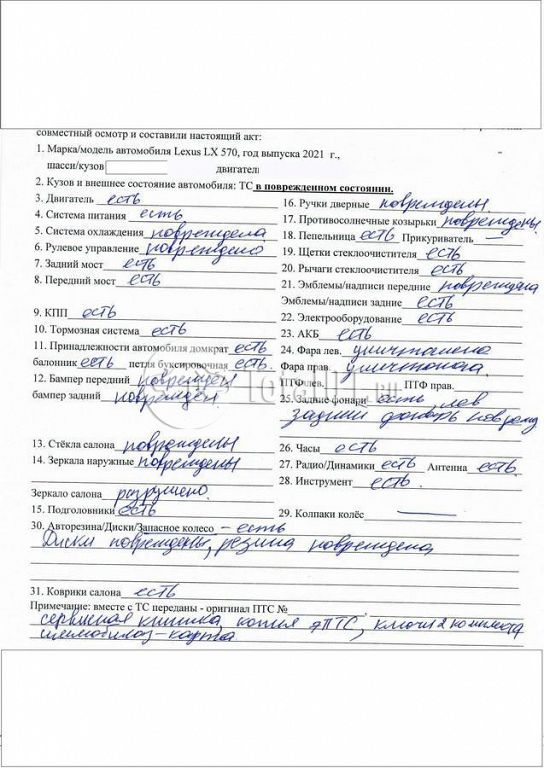 совместный осмотр и составили настоящий акт:
1. Марка/модель автомобиля Lexus LX 570, год выпуска 2021 г.,
шасси/кузов двигател
2. Кузов и внешнее состояние автомобиля: ТС в поврежденном состоянии.
3. Двигатель есть
4. Система питания есть
5. Система охлаждения повреждена
6. Рулевое управление повреждено
7. Задний мост есть
8. Передний мост есть
9. КПП есть
10. Тормозная система есть
11. Принадлежности автомобиля домкрат есть
балонник есть петля буксировочная есть.
12. Бампер передний поврежден
бампер задний поврежден
13. Стёкла салона повреждены
14. Зеркала наружные повреждены
Зеркало салона разрушено.
15. Подголовники есть
16. Ручки дверные повреждены
17. Противосолнечные козырьки повреждены.
18. Пепельница есть Прикуриватель —
19. Щетки стеклоочистителя есть
20. Рычаги стеклоочистителя есть
21. Эмблемы/надписи передние повреждена
Эмблемы/надписи задние есть
22. Электрооборудование есть
23. АКБ есть
24. Фара лев. уничтожена
Фара прав. уничтожена.
ПТФ лев. ПТФ прав.
25. Задние фонари есть лев
задний фонарь поврежд
26. Часы есть
27. Радио/Динамики есть Антенна есть.
28. Инструмент есть
29. Колпаки колёс —
30. Авторезина/Диски/Запасное колесо - есть
Диски повреждены, резина повреждена
31. Коврики салона есть
Примечание: вместе с ТС переданы - оригинал ПТС №
сервисная книжка, копия эПТС, ключи 2 комплекта
иммобилаз-карта